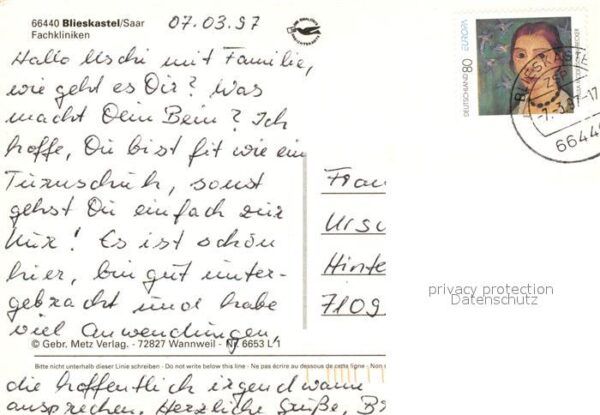 66440 Blieskastel/Saar
Fachkliniken
07.03.97
Hallo Uschi mit Familie,
wie geht es Dir? Was
macht Dein Bein? Ich
hoffe, Du bist fit wie ein
Turnschuh, sonst
gehst Du einfach zur
Kur! Es ist schön
hier, bin gut unter-
gebracht und habe
viel Anwendungen,
© Gebr. Metz Verlag. - 72827 Wannweil - Nr. 6653 L 1
Bitte nicht unterhalb dieser Linie schreiben - Do not write below this line - Ne pas écrire au dessous de cette ligne - Non
die hoffentlich irgendwann
ansprechen. Herzliche Grüße,
DEUTSCHLAND 80 EUROPA
BLIESKASTEL
-7.3.97-17
6644
Frau
Ursu
Hinte
7109
privacy protection
Datenschutz